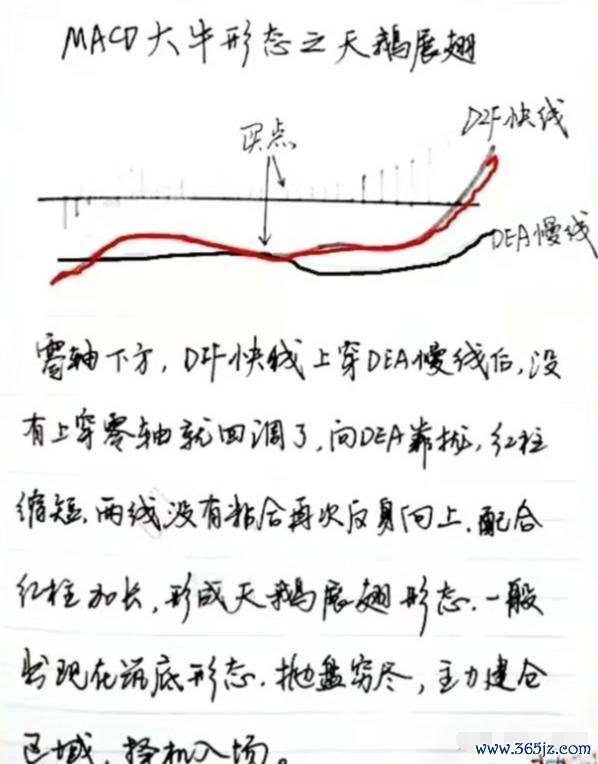 MACD大牛形态之天鹅展翅
买点
DIF快线
DEA慢线
零轴下方,DIF快线上穿DEA慢线后,没
有上穿零轴就回调了,向DEA靠拢,红柱
缩短,两线没有粘合再次反身向上,配合
红柱加长,形成天鹅展翅形态.一般
出现在筑底形态.抛盘穷尽,主力建仓
区域,择机入场。
www.365jz.com